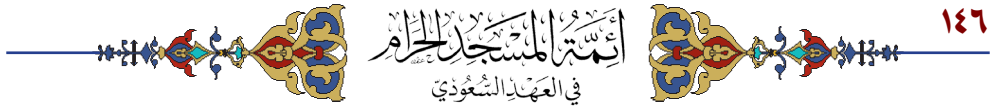 ١٤٦
أَئِمَّةُ المَسْجِدِ الحَرَامِ
فِي العَهْدِ السُّعُودِيّ